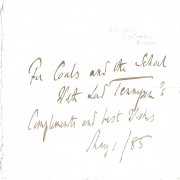 For Coals and the School
With Lord Tennyson's
Compliments and best Wishes
May 1/85